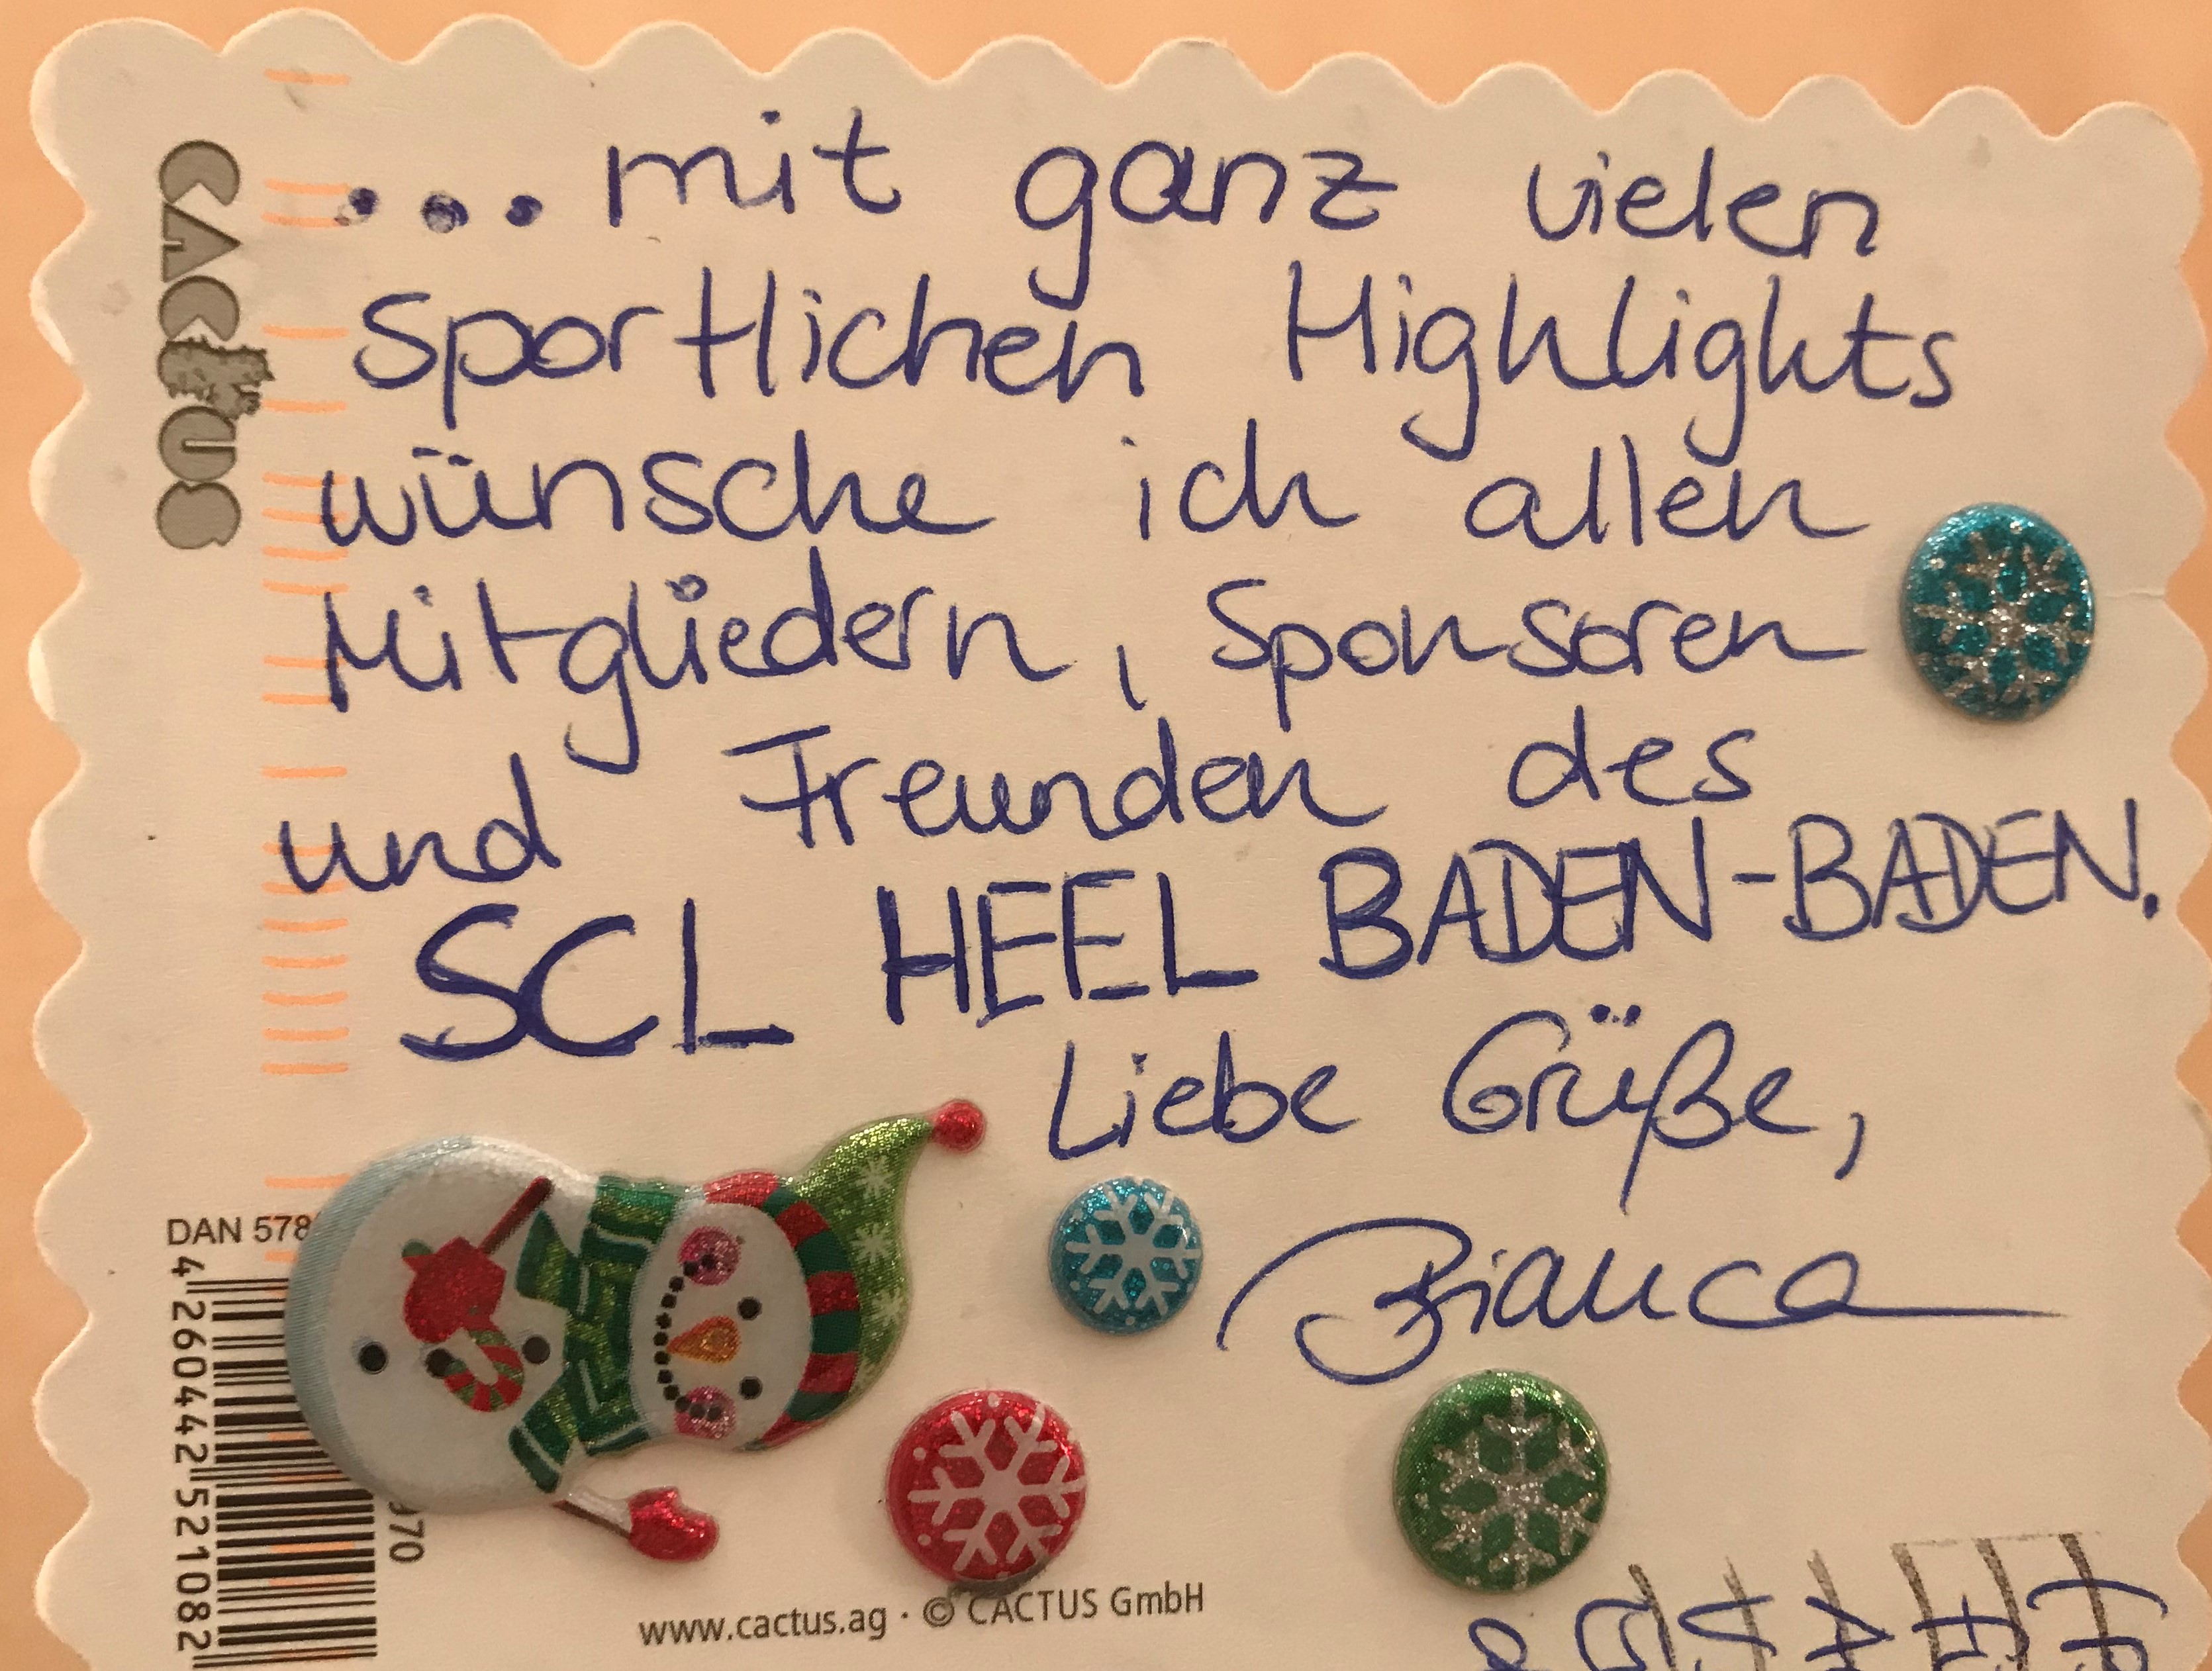 ... mit ganz vielen
sportlichen Highlights
wünsche ich allen
Mitgliedern, Sponsoren
und Freunden des
SCL HEEL BADEN-BADEN.
Liebe Grüße,
Bianca
CACTUS
DAN 578
970
4 260442 521082
www.cactus.ag · © CACTUS GmbH